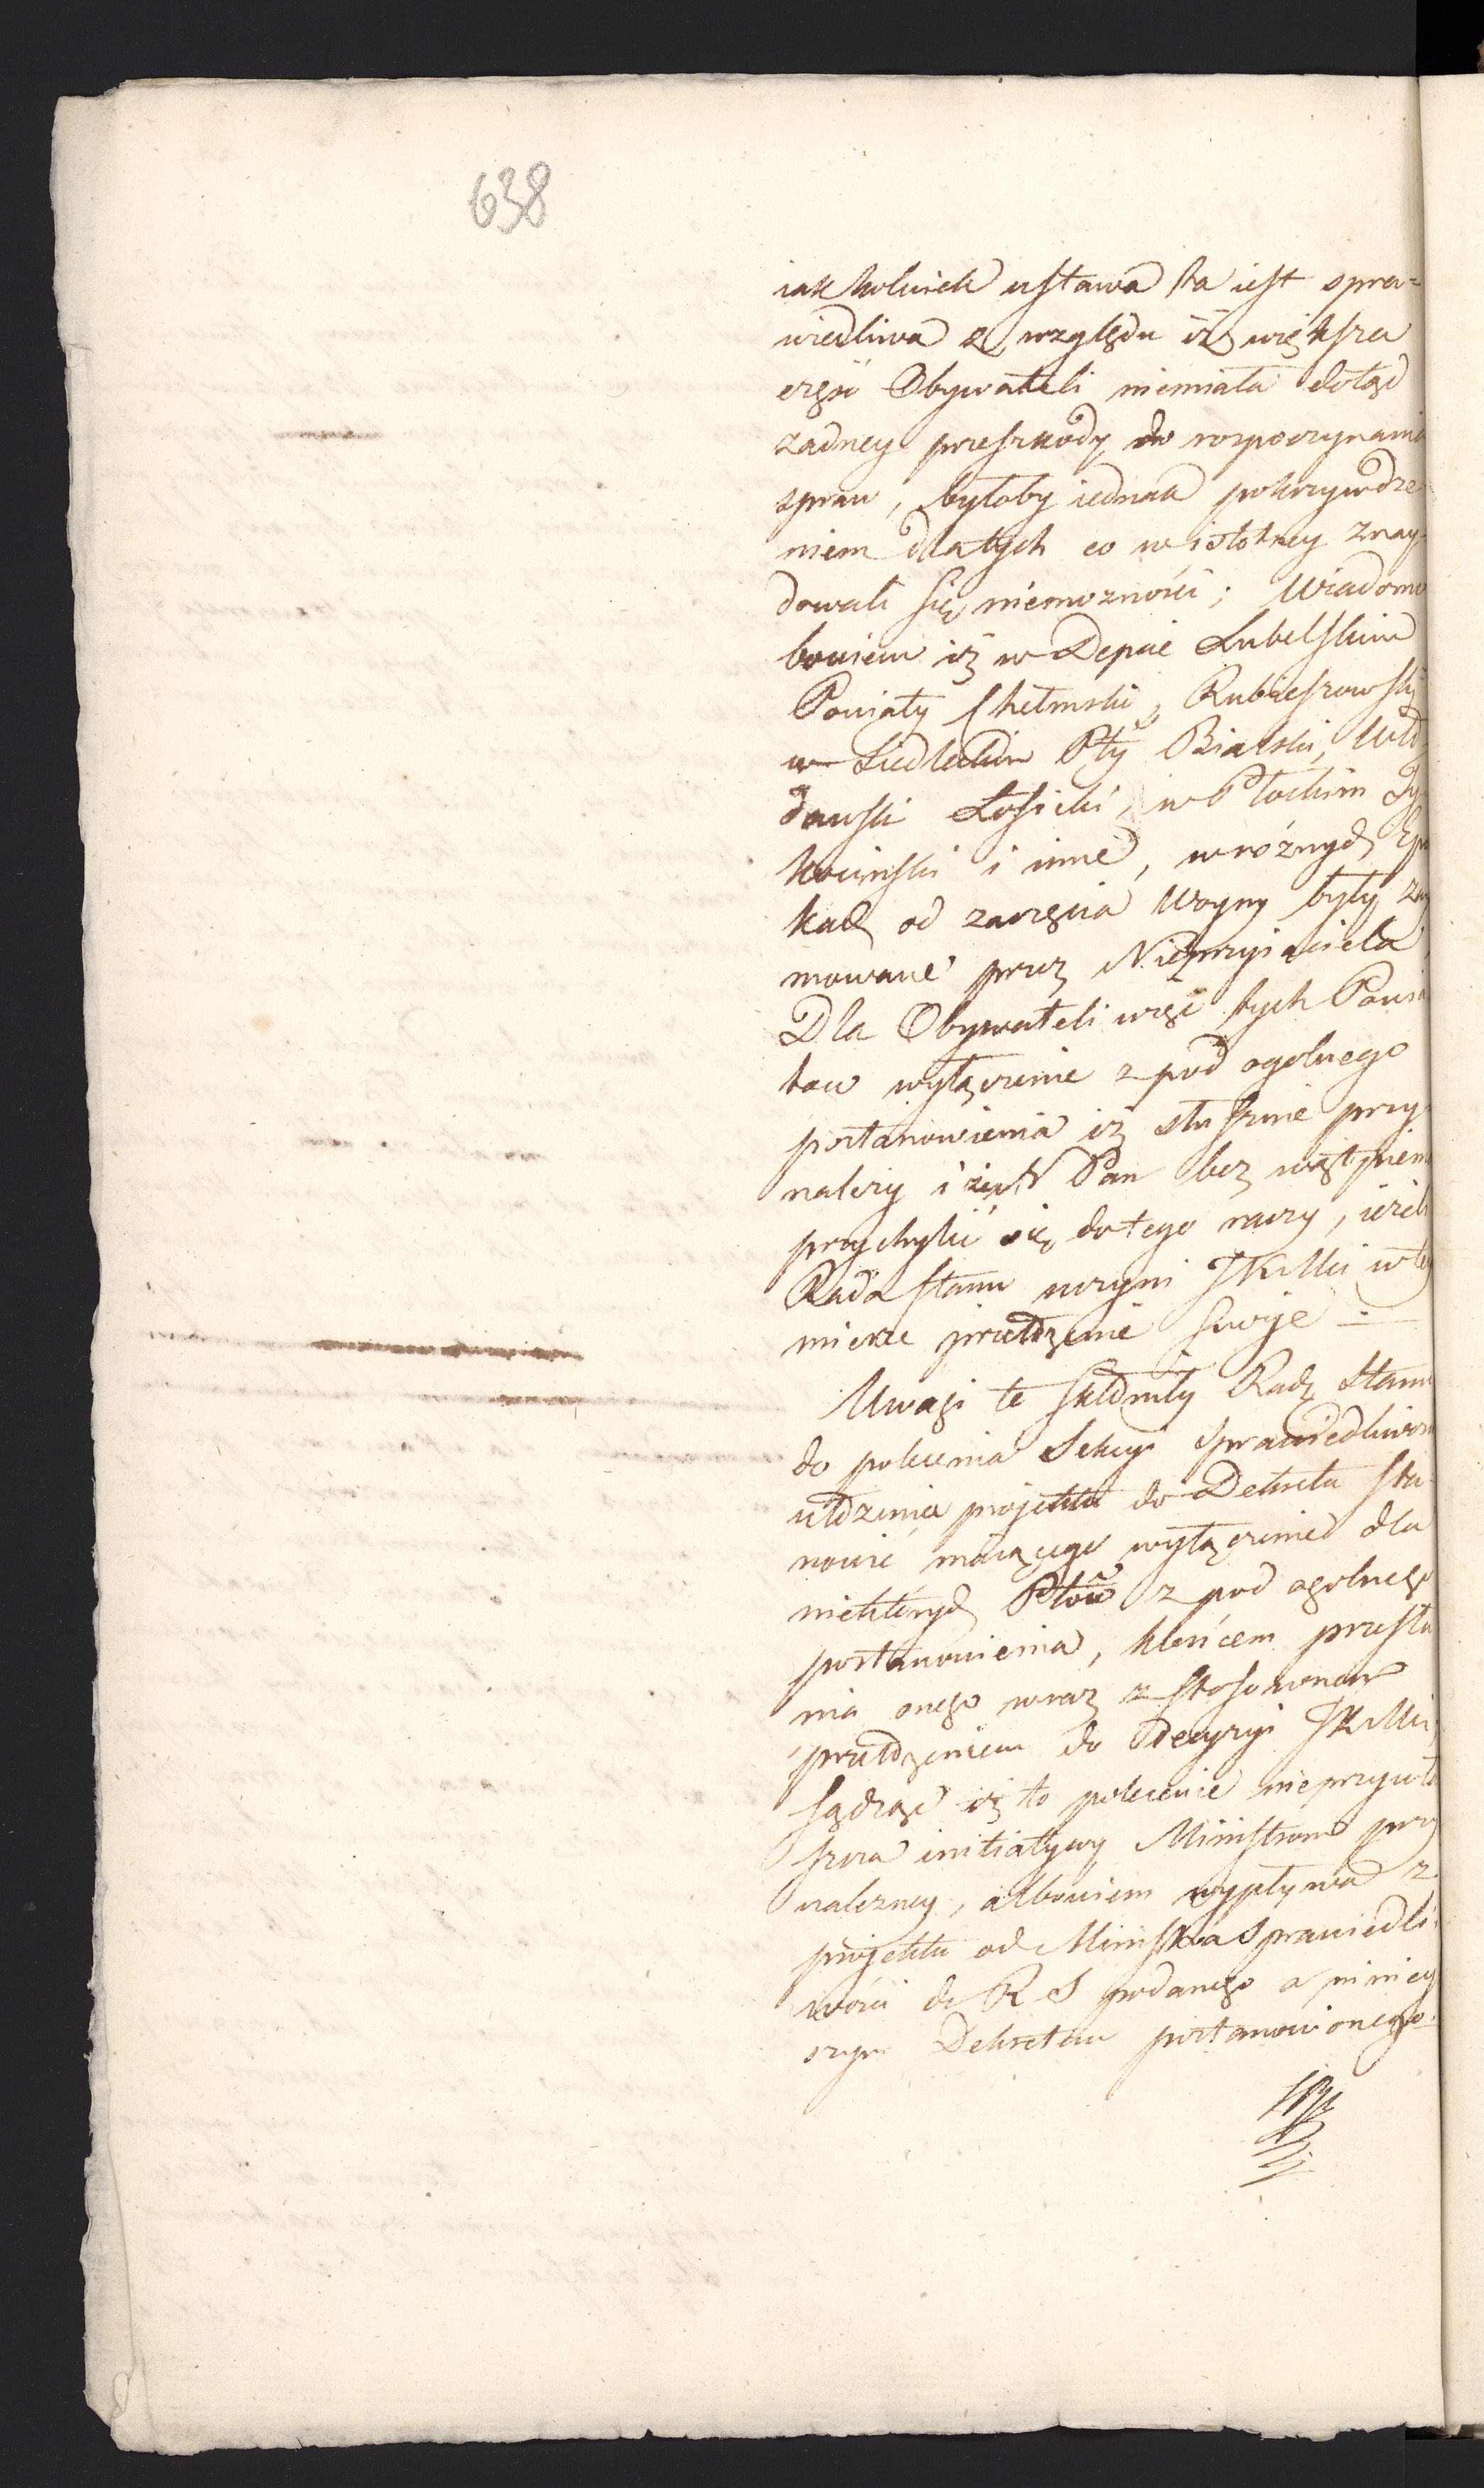 638
iakkolwiek ustawa ta iest spra=
wiedliwa z względu iż większa
część Obywateli niemiała dotąd
zadney przeszkody do rozpoczynania
spraw, byłoby iednak pokrzywdze
niem dla tych co w istotney znay
dowali się niemożności; Wiadomo
bowiem iż w Depcie Lubelskim
Powiaty Chełmski, Rubieszowski
w Siedleckim Pty Bialski, Wło
dawski Łosicki, w Płockim Ty
kocinski i inne, w różnych Epo
kach od zaczęcia Woyny były zay
mowane przez Nieprzyiaciela,
Dla Obywateli więc tych Powia
tow wyłączenie z pod ogolnego
postanowienia iż słusznie przy
należy i że N Pan bez wątpienia
przychylić się do tego raczy, ieżeli
Rada Stanu uczyni JKMci w tey
mierze przełożenie swoje –
Uwagi te skłoniły Radę Stanu
do polecenia Sekcyi Sprawiedliwości
ułożenia projektu do Dekretu sta
nowić maiącego wyłączenie dla
niektórych Ptow z pod ogolnego
postanowienia, końcem przesła
nia onego wraz z stosownem
przełożeniem do Decyzyi JKMci,
sądząc iż to polecenie nieprzywła
szcza initiatywy Ministrom przy
należney, albowiem wypływa z
projektu od Ministra Sprawiedli
wości do R S podanego a niniey
szym Dekretem postanowionego.